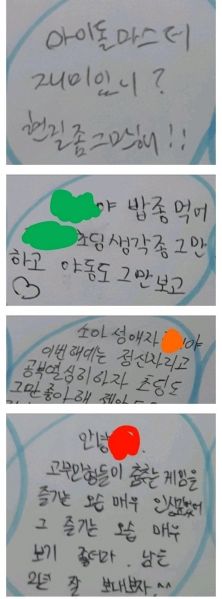 아이돌마스터
재미있니?
현질좀그만해!!
야 밥좀먹어
초딩생각좀그만
하고 야동도그만보고
소아성애자 야
이번해에는 정신차리고
공부열심히하자 초딩도
그만좋아해
안녕
고무만형들이 춤추는 게임을
즐기는 모습 매우 인상깊었어
그 즐기는 모습 매우
보기 좋더라. 남은
2년 잘 보내보자^^